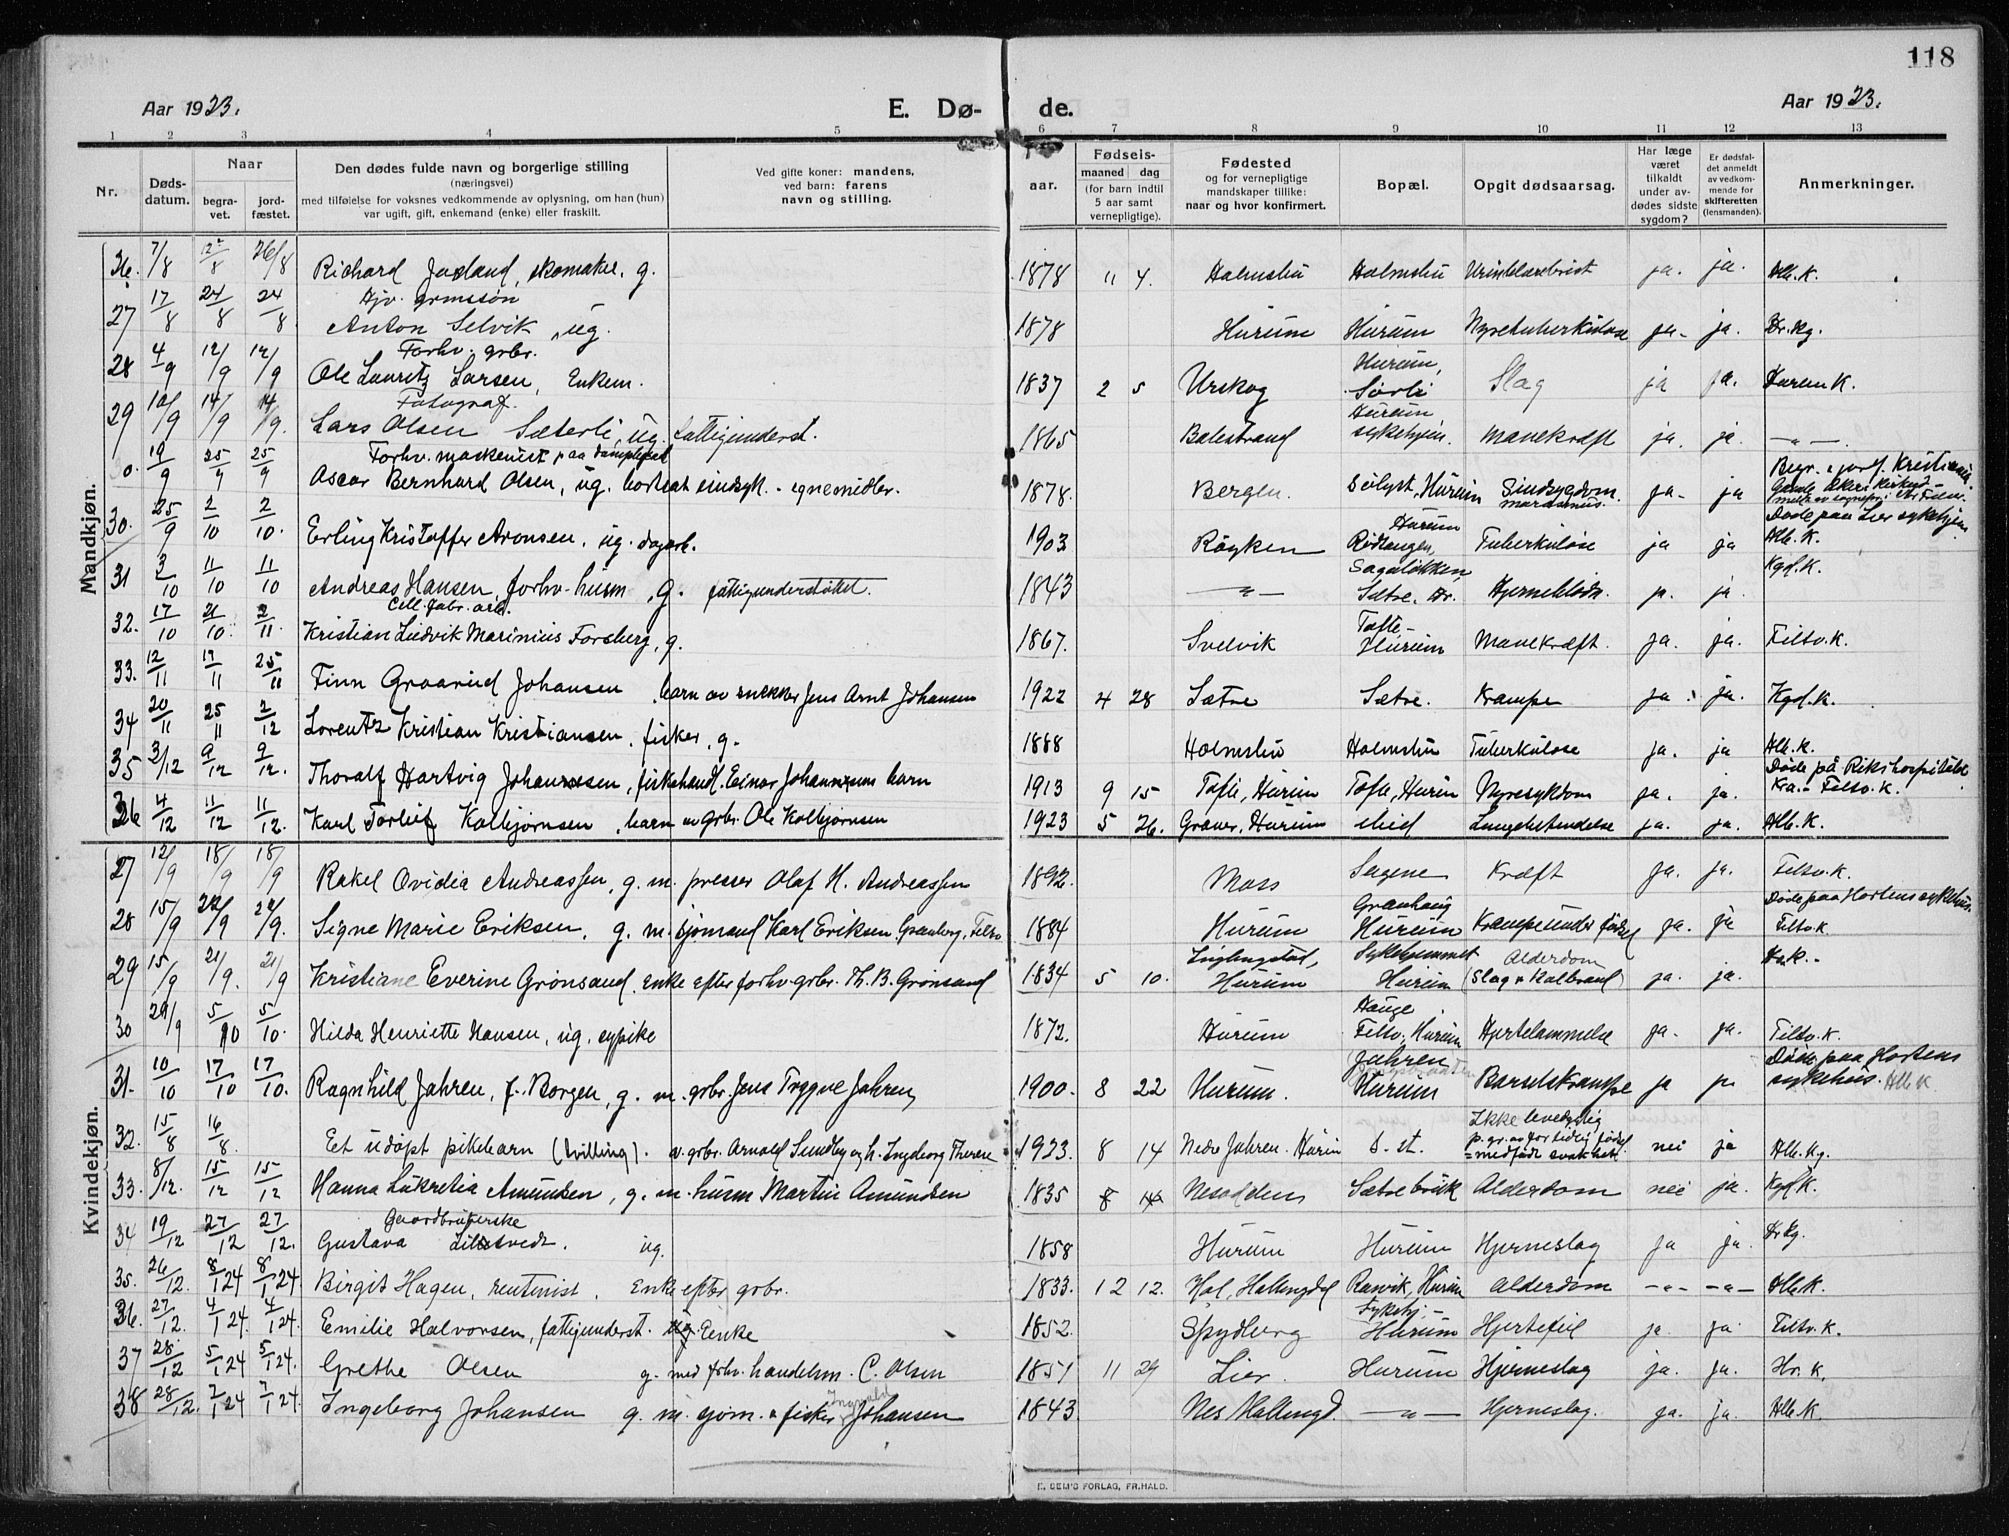 118
Aar 1923.
E. Dø-
de.
Aar 1923.
1 2 3 4 5 6 7 8 9 10 11 12 13
Nr.
Døds-
datum.
Naar
begra-
vet.
jord-
fæstet.
Den dødes fulde navn og borgerlige stilling
(næringsvei)
med tilføielse for voksnes vedkommende av oplysning, om han (hun)
var ugift, gift, enkemand (enke) eller fraskilt.
Ved gifte koner: mandens,
ved barn: farens
navn og stilling.
aar.
Fødsels-
maaned dag
(for barn indtil
5 aar samt
vernepligtige).
Fødested
og for vernepligtige
mandskaper tillike:
naar og hvor konfirmert.
Bopæl.
Opgit dødsaarsag.
Har læge
været
tilkaldt
under av-
dødes sidste
sygdom?
Er dødsfal-
det anmeldt
av vedkom-
mende for
skifteretten
(lensmanden).
Anmerkninger.
Mandkjøn.
26. 7/8 12/8 26/8 Richard Jaxland, skomaker, g. 1878 11 4. Holmsbu Holmsbu Urinblærebrist ja. ja. Hb. K.
Hjv. grmssøn
27 17/8 24/8 24/8 Anton Selvik, ug. 1878 Hurum Hurum Nyretuberkulose ja- ja. Hr. kg.
Forhv. grbr. Hurum,
28 4/9 12/9 12/9 Ole Lauritz Larsen, Enkem. 1837 2 5 Urskog Sørli Slag ja ja. Hurum K.
Fotograf. Hurum
29 10/9 14/9 14/9. Lars Olsen Sæterli, ug. Fattigunderst. 1865 Balestrand sykehjem. Mavekræft ja. ja. -"-.
Forhv. maskenist paa dampskib Begr. i jordf. Kristiania
0. 19/9 25/9 25/9 Oscar Bernhard Olsen, ug. bortsat sindsyk. - egne midler. 1878. Bergen. Sølyst, Hurum Sindsygdom marasmus. ja- ja
Døde paa Lier sykehjem
30. 25/9 2/10 2/10. Erling Kristoffer Aronsen, ug. dagarb. 1903 Røyken Hurum Rødtangen, Tuberkuløse ja ja Hb. K.
31 3/10 11/10 11/10 Andreas Hansen, forhv. husm, g. fattigunderstøttet. 1843 -"- Sagaløkken, Sætre, Hr. Hjerneblødn. ja. ja. Kgd. K.
Cell. fabr. arb.
32. 17/10 21/10. 2/11. Kristian Ludvik Marinius Forsberg, g. 1867. Svelvik Tofte- Hurum Mavekræft. ja. ja. Filtv. K.
33. 12/11 19/11 25/11 Finn Graarud Johansen, barn av snekker Jens Arnt Johansen 1922 4 28 Sætre Sætre. Krampe ja. ja. Kgd. K.
34 20/11 25/11 2/12 Lorentz Kristian Kristiansen, fisker, g. 1888 Holmsbu Holmsbu Tuberkulose ja. ja Hb. K.
Døde på Rikshospitalet
35 3/12 9/12 9/12. Thoralf Hartvig Johannesen, fiskehandl. Einar Johannesens barn 1913 9 15 Tofte, Hurum Tofte, Hurum Nyresykdom ja. ja. Kra.- Filtv. K.
36 4/12 11/12 11/12. Karl Torleif Kolbjørnsen, barn av grbr. Ole Kolbjørnsen 1923 5 26. Graver, Hurum ibid Lungebetændelse ja. ja. Hb. K.
Kvindekjøn.
27 12/9 18/9 18/9 Rakel Ovidia Andreassen, g. m. presser Olaf H. Andreassen 1892. Moss Sagene Kræft ja. ja. Filtv. K.
Granhaug Døde paa Hortens sykehus.
28 15/9 22/9 22/9. Signe Marie Eriksen, g. m. sjømand Karl Eriksen Granberg, Filtv 1884 Hurum Hurum Krampe under fødsel ja. ja Filtv. K.
Sykehjemmet Alderdom
29 15/9 21/9. 21/9 Kristiane Everine Grønsand, enke efter forhv. grbr. Th. B. Grønsand 1834 5 10. Hurum Hurum (Slag + Kolbrand) ja. ja. Hr. K.
Hauge,
30 29/9 5/10 5/10. Hilda Henriette Hansen, ug. sypike 1872. Hurum Filtv. Hurum Hjertelammelse ja. ja. Filtv. K.
Jahren Døde paa Hortens
31. 10/10 17/10 17/10. Ragnhild Jahren, f. Borgen, g. m. grbr. Jens Trygve Jahren, 1900. 8 22 Hurum. Hurum Barselskrampe ja ja sykehus. Hb. K.
Ikke levedygtig
32. 15/8 16/8. Et udøpt pikebarn (tvilling). av grbr. Arnold Sundby og h. Ingeborg Therese 1923. 8 14 Nedre Jahren. Hurum s. st. p. gr. av for tidlig fødsel = medfødt svakhet. nei ja Hb. Kg.
33. 8/12. 15/12 15/12 Hanna Lukretia Amundsen, g. m. husm Martin Amundsen 1835 8 14 Nesodden Sætre bruk Alderdom nei ja. Kgd K.
Gaardbrukerske
34 19/12 27/12 27/12. Gustava Lillestvedt. ug. 1858 Hurum Hurum Hjerneslag ja ja. Hr kg.
35. 26/12. 8/1 24 8/1 24 Birgit Hagen, rentenist. Enke efter grbr. 1833. 12 12. Hol, Hallingdal Ramvik, Hurum Alderdom -"- -"- Hb. K.
Sykehj.-
36. 27/12. 4/1 24. 4/1 24. Emilie Halvorsen, fattigunderst. ug. Eenke 1852. Spydberg Hurum Hjertefeil ja. ja. Filtv. K.
37 28/12 5/1 24 5/1 24. Grethe Olsen g. med forhv. handelsm. C. Olsen 1851 11 29 Lier. Hurum Hjerneslag ja. ja. Hr. K.
Ingvald
38 28/12. 7/1 24 7/1 24. Ingeborg Johansen g. m. sjøm. & fisker Johansen 1843. Nes Hallingd. -"- Hjerneslag. ja. ja. Hb. K.
E. SEM'S FORLAG, FR.HALD.